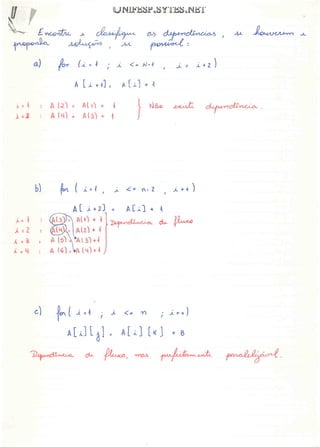 UNIFESP.SYTES.NET
Encontre e classifique as dependências, se houverem e
proponha soluções, se possível:
a) for (i = 1 ; i <= N-1 , i = i+2)
A [i+1] = A[i] + 1
i = 1 : A(2) = A(1) + 1 } Não existe dependência.
i = 3 : A(4) = A(3) + 1
b) for ( i=1 , i <= n-2 , i++ )
A[i+2] = A[i] + 1
i = 1 : A(3) = A(1) + 1
i = 2 : A(4) = A(2) + 1 } Dependência de fluxo
i = 3 : A(5) = A(3)+1
i = 4 : A(6) = A(4)+1
c) for ( i=1 ; i <= n ; i++ )
A[i][j] = A[i][K] * B
Dependência de fluxo, mas perfeitamente paralelizável.